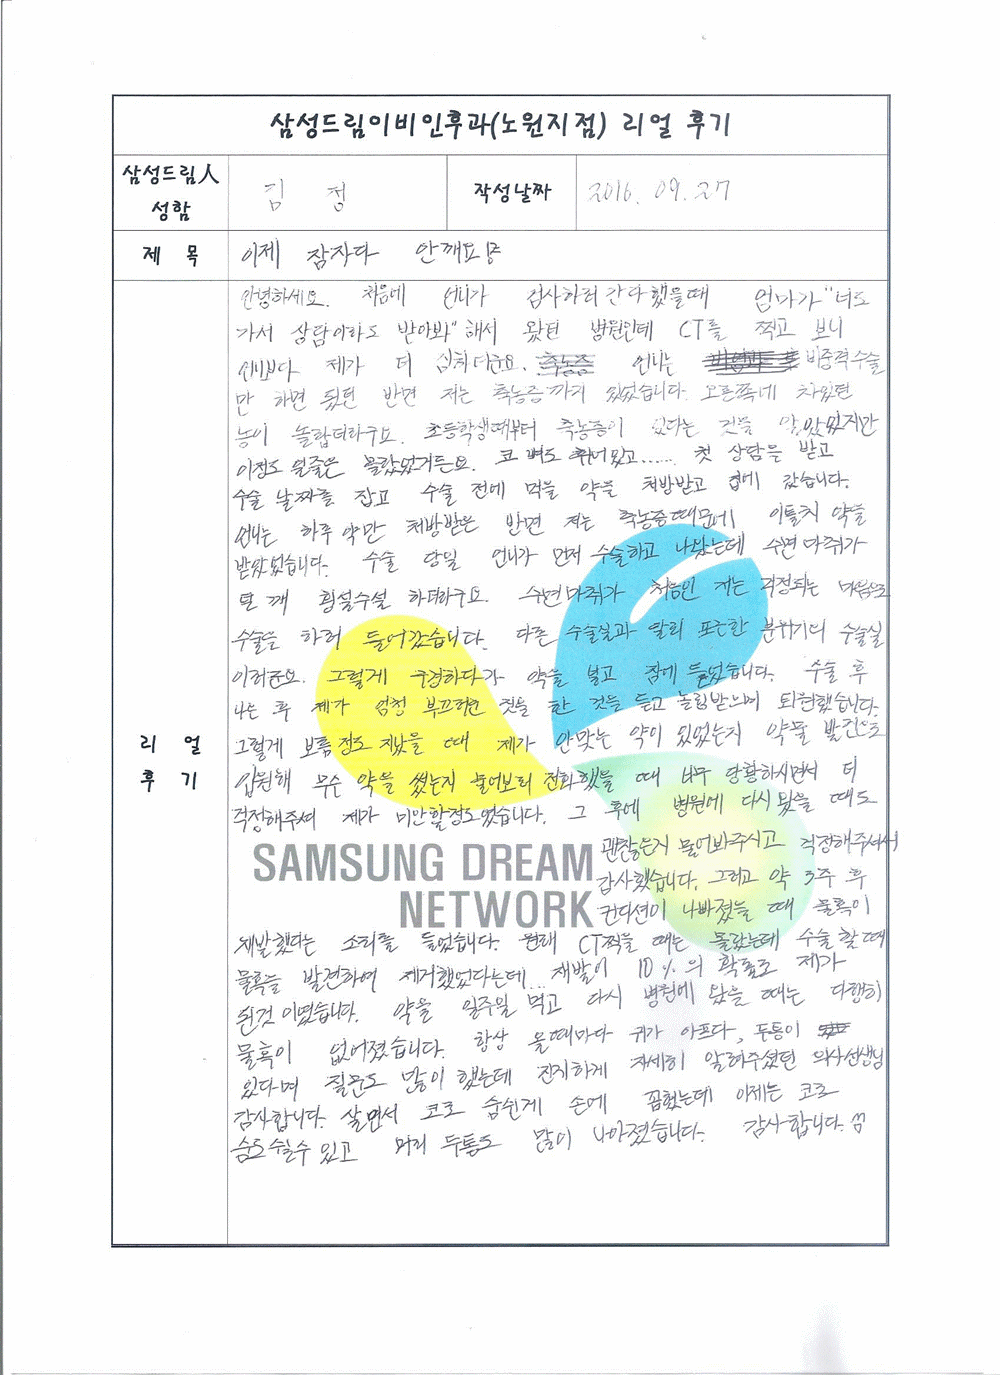 삼성드림이비인후과(노원지점) 리얼 후기
삼성드림人
성함
김 정
작성날짜
2016. 09. 27
제 목
이제 잠자다 안깨요
리 얼
후 기
안녕하세요. 처음에 언니가 검사하러 간다했을때 엄마가 "너도
가서 상담이라도 받아봐" 해서 왔던 병원인데 CT를 찍고 보니
언니보다 제가 더 심하더군요. 언니는 비중격수술
만 하면 됬던 반면 저는 축농증까지 있었습니다. 오른쪽에 차있던
농이 놀랍더라구요. 초등학생때부터 축농증이 있다는 것을 알았었지만
이정도 일줄은 몰랐었거든요. 코 뼈도 휘어있고...... 첫 상담을 받고
수술 날짜를 잡고 수술 전에 먹을 약을 처방받고 집에 갔습니다.
언니는 하루 약만 처방받은 반면 저는 축농증때문에 이틀치 약을
받았었습니다. 수술 당일 언니가 먼저 수술하고 나왔는데 수면마취가
덜 깨 횡설수설 하더라구요. 수면마취가 처음인 저는 걱정되는 마음으로
수술을 하러 들어갔습니다. 다른 수술실과 달리 포근한 분위기의 수술실
이더군요. 그렇게 구경하다가 약을 넣고 잠에 들었습니다. 수술 후
나는 후 제가 엄청 부끄러운 짓을 한 것을 듣고 놀림받으며 퇴원했습니다.
그렇게 보름정도 지났을 때 제가 안맞는 약이 있었는지 약물 발진으로
입원해 무슨 약을 썼는지 물어보러 전화했을 때 너무 당황하시면서 더
걱정해주셔 제가 미안할정도였습니다. 그 후에 병원에 다시 왔을 때도
괜찮는지 물어봐주시고 걱정해주셔서
감사했습니다. 그리고 약 3주 후
컨디션이 나빠졌을 때 물혹이
SAMSUNG DREAM
NETWORK
재발했다는 소리를 들었습니다. 원래 CT찍을 때는 몰랐는데 수술할때
물혹을 발견하여 제거했었다는데... 재발이 10%의 확률로 제가
된것 이였습니다. 약을 일주일 먹고 다시 병원에 왔을 때는 다행히
물혹이 없어졌습니다. 항상 올때마다 귀가 아프다, 두통이
있다며 질문도 많이 했는데 진지하게 자세히 알려주셨던 의사선생님
감사합니다. 살면서 코로 숨쉰게 손에 꼽혔는데 이제는 코로
숨도쉴수 있고 머리 두통도 많이 나아졌습니다. 감사합니다.